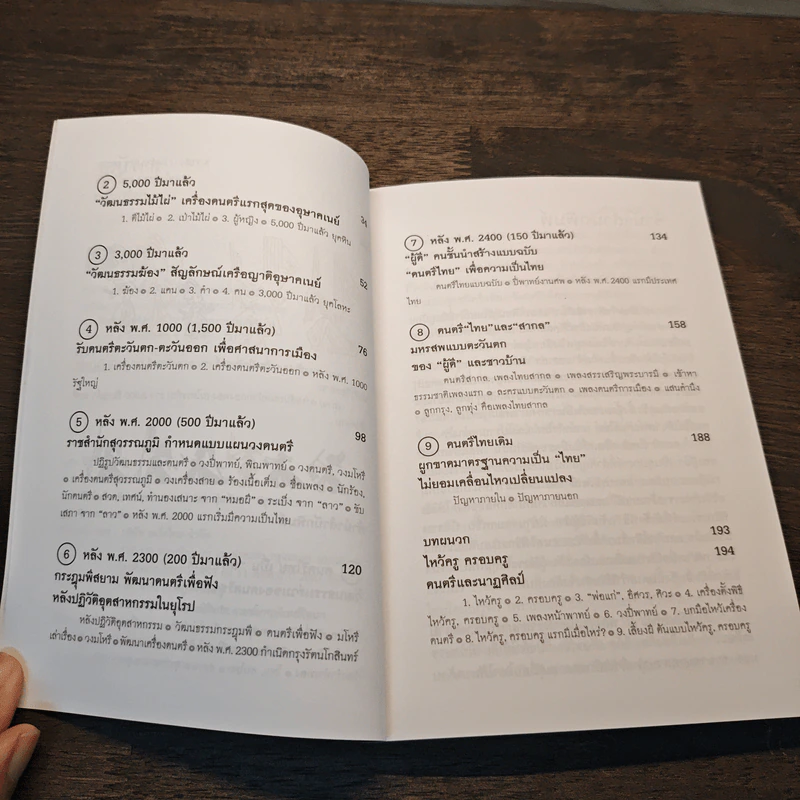 ② 5,000 ปีมาแล้ว
“วัฒนธรรมไม้ไผ่” เครื่องดนตรีแรกสุดของอุษาคเนย์ 34
1. ตีไม้ไผ่ ๏ 2. เป่าไม้ไผ่ ๏ 3. ผู้หญิง ๏ 5,000 ปีมาแล้ว ยุคหิน
③ 3,000 ปีมาแล้ว
“วัฒนธรรมฆ้อง” สัญลักษณ์เครือญาติอุษาคเนย์ 52
1. ฆ้อง ๏ 2. แคน ๏ 3. คำ ๏ 4. คน ๏ 3,000 ปีมาแล้ว ยุคโลหะ
④ หลัง พ.ศ. 1000 (1,500 ปีมาแล้ว)
รับดนตรีตะวันตก-ตะวันออก เพื่อศาสนาการเมือง 76
1. เครื่องดนตรีตะวันตก ๏ 2. เครื่องดนตรีตะวันออก ๏ หลัง พ.ศ. 1000
รัฐใหญ่
⑤ หลัง พ.ศ. 2000 (500 ปีมาแล้ว)
ราชสำนักสุวรรณภูมิ กำหนดแบบแผนวงดนตรี 98
ปฏิรูปวัฒนธรรมและดนตรี ๏ วงปี่พาทย์, พิณพาทย์ ๏ วงดนตรี, วงมโหรี
๏ เครื่องดนตรีสุวรรณภูมิ ๏ วงเครื่องสาย ๏ ร้องเนื้อเต็ม ๏ ชื่อเพลง ๏ นักร้อง,
นักดนตรี ๏ สวด, เทศน์, ทำนองเสนาะ จาก “หมอผี” ๏ ระเบ็ง จาก “ลาว” ๏ ขับ
เสภา จาก “ลาว” ๏ หลัง พ.ศ. 2000 แรกเริ่มมีความเป็นไทย
⑥ หลัง พ.ศ. 2300 (200 ปีมาแล้ว) 120
กระฎุมพีสยาม พัฒนาดนตรีเพื่อฟัง
หลังปฏิวัติอุตสาหกรรมในยุโรป
หลังปฏิวัติอุตสาหกรรม ๏ วัฒนธรรมกระฎุมพี ๏ ดนตรีเพื่อฟัง ๏ มโหรี
เล่าเรื่อง ๏ วงมโหรี ๏ พัฒนาเครื่องดนตรี ๏ หลัง พ.ศ. 2300 กำเนิดกรุงรัตนโกสินทร์
⑦ หลัง พ.ศ. 2400 (150 ปีมาแล้ว) 134
“ผู้ดี” คนชั้นนำสร้างแบบฉบับ
“ดนตรีไทย” เพื่อความเป็นไทย
ดนตรีไทยแบบฉบับ ๏ ปี่พาทย์งานศพ ๏ หลัง พ.ศ. 2400 แรกมีประเทศ
ไทย
⑧ ดนตรี“ไทย”และ“สากล” 158
มหรสพแบบตะวันตก
ของ “ผู้ดี” และชาวบ้าน
ดนตรีสากล เพลงไทยสากล ๏ เพลงสรรเสริญพระบารมี ๏ เข้าหา
ธรรมชาติเพลงแรก ๏ ละครแบบตะวันตก ๏ เพลงดนตรีการเมือง ๏ แสนคำนึง
๏ ลูกกรุง, ลูกทุ่ง คือเพลงไทยสากล
⑨ ดนตรีไทยเดิม 188
ผูกขาดมาตรฐานความเป็น “ไทย”
ไม่ยอมเคลื่อนไหวเปลี่ยนแปลง
ปัญหาภายใน ๏ ปัญหาภายนอก
บทผนวก 193
ไหว้ครู ครอบครู 194
ดนตรีและนาฏศิลป์
1. ไหว้ครู ๏ 2. ครอบครู ๏ 3. “พ่อแก่”, อิศวร, ศิวะ ๏ 4. เครื่องตั้งพิธี
ไหว้ครู, ครอบครู ๏ 5. เพลงหน้าพาทย์ ๏ 6. วงปี่พาทย์ ๏ 7. ยกมือไหว้เครื่อง
ดนตรี ๏ 8. ไหว้ครู, ครอบครู แรกมีเมื่อไหร่? ๏ 9. เลี้ยงผี ต้นแบบไหว้ครู, ครอบครู